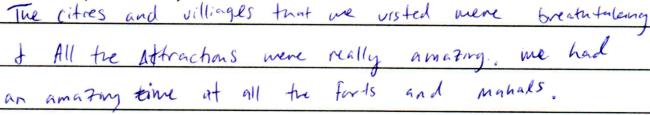 The cities and villiages that we visted were breathtaking
& All the Attractions were really amazing. we had
an amazing time at all the forts and mahals.